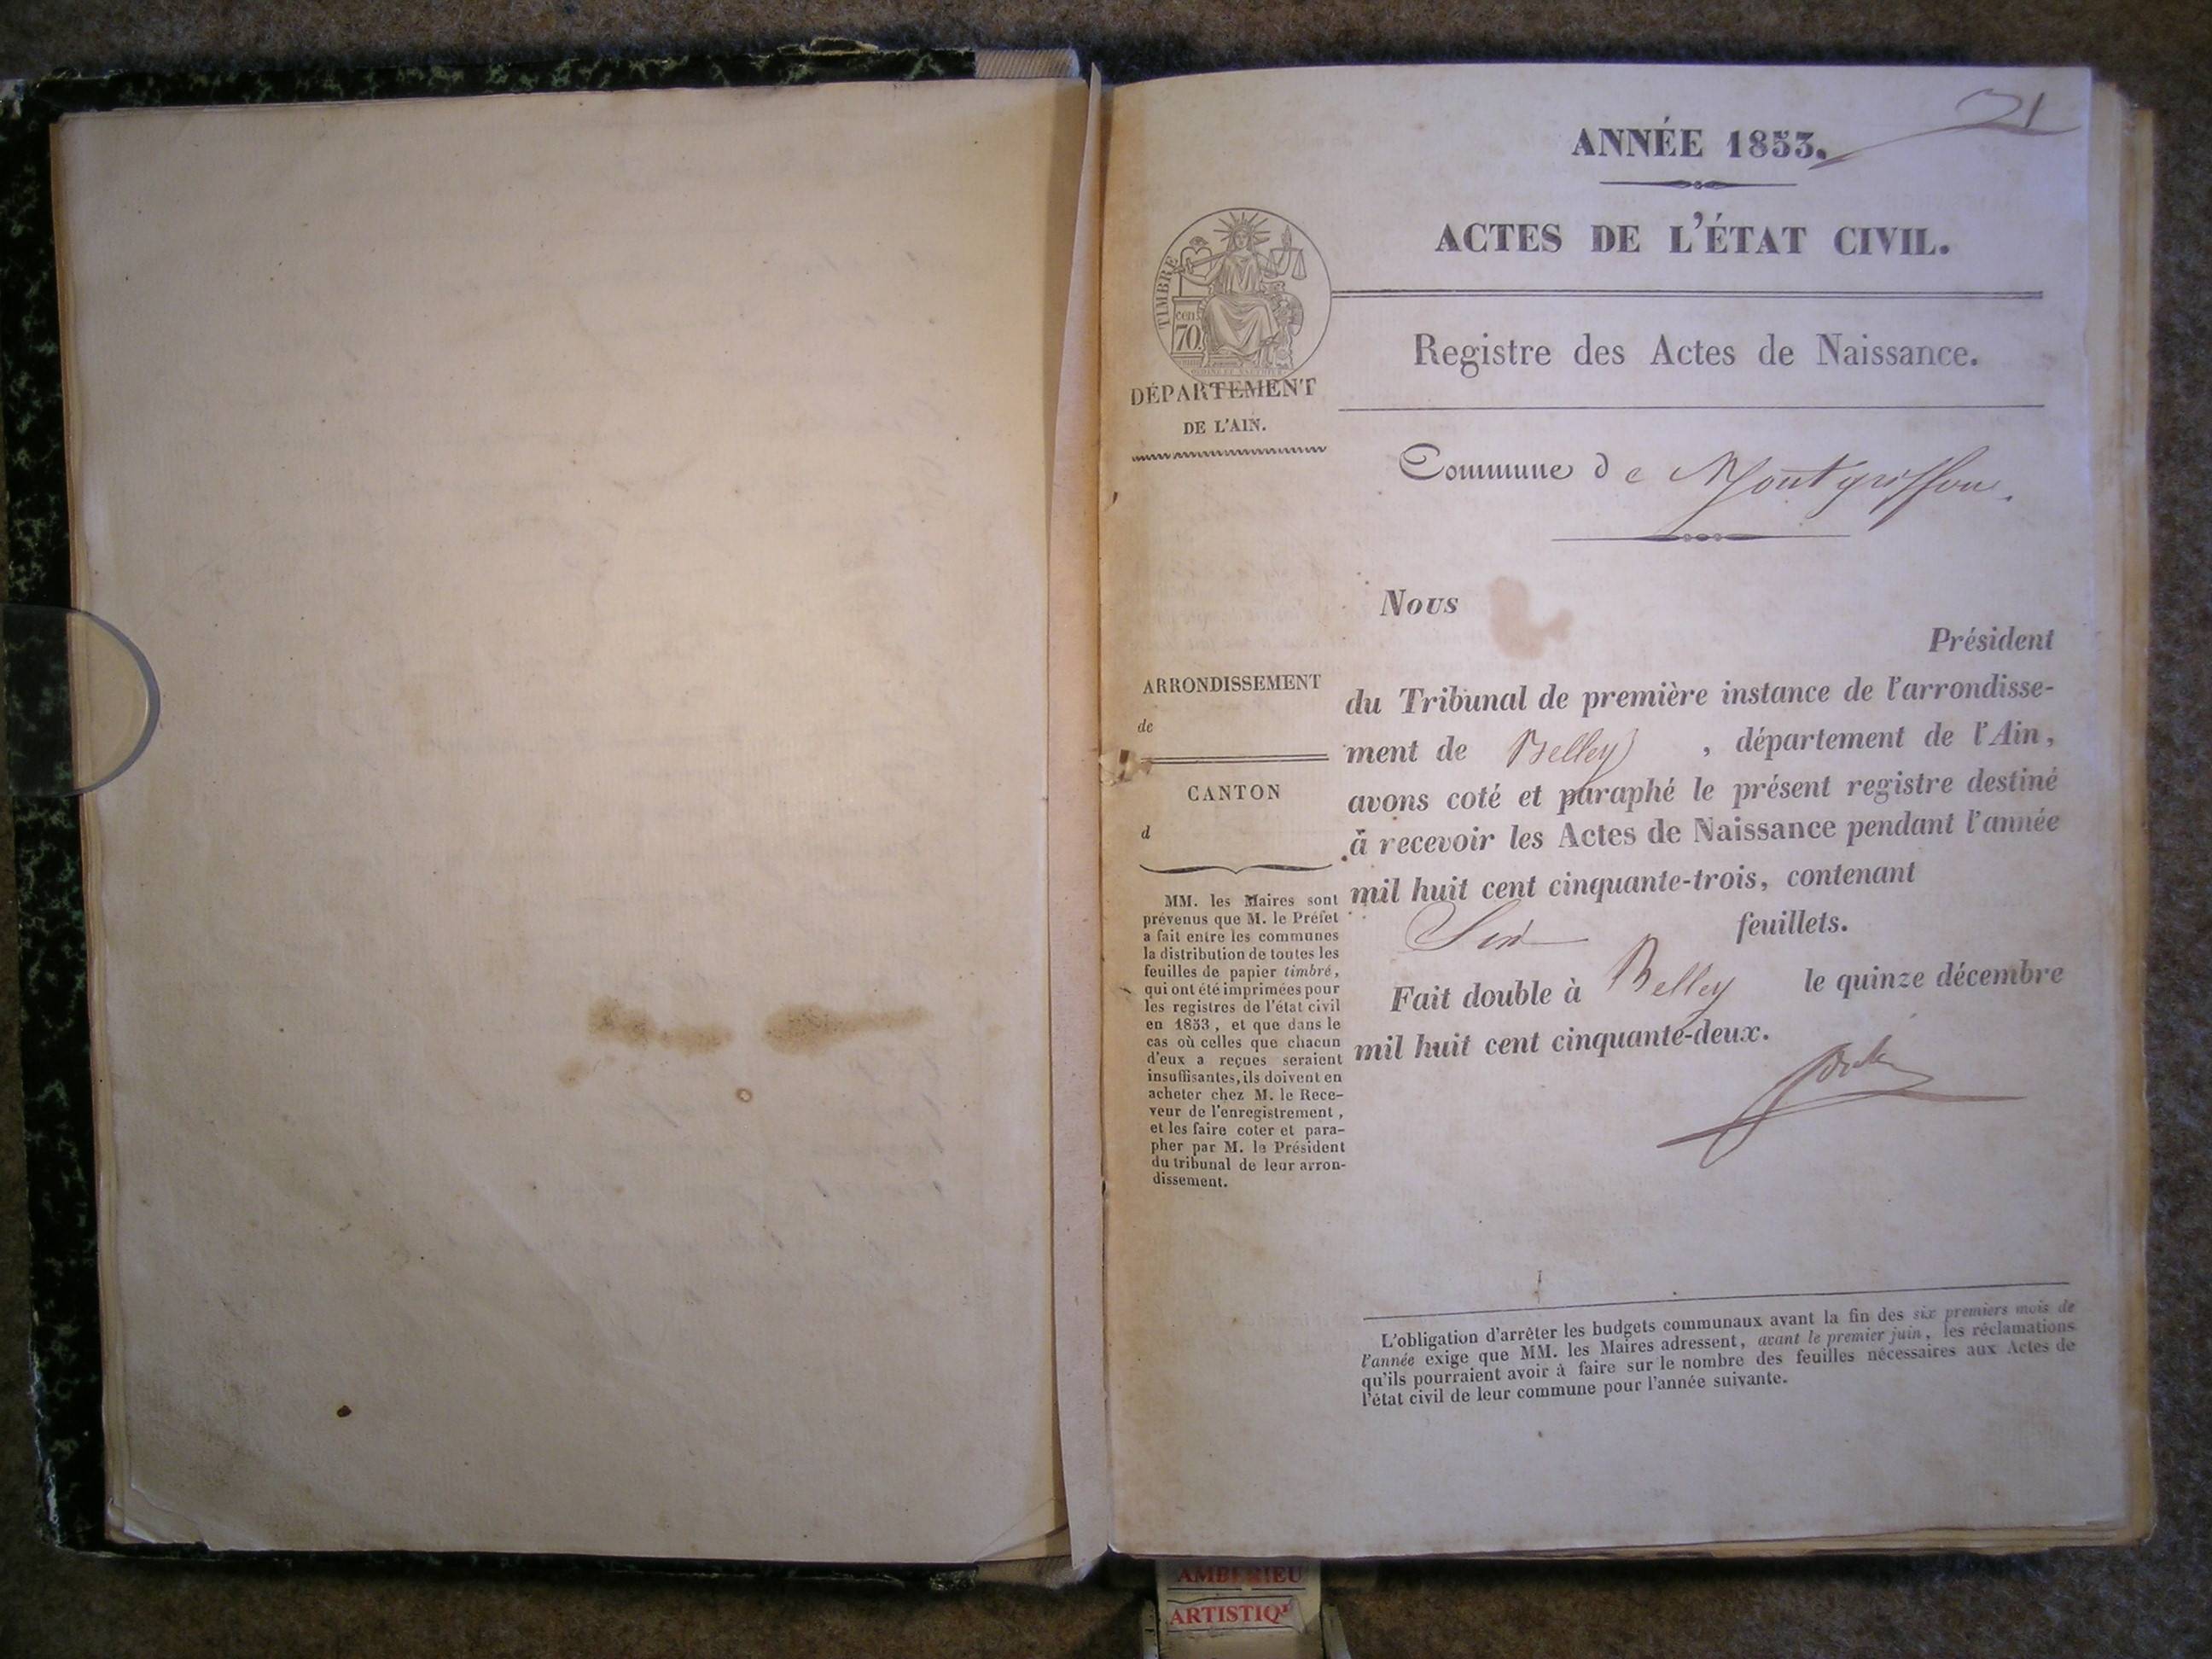 21
ANNÉE 1853.
ACTES DE L'ÉTAT CIVIL.
TIMBRE
cen.
70.
Registre des Actes de Naissance.
DÉPARTEMENT
DE L'AIN.
Commune de Montgriffon.
Nous
Président
du Tribunal de première instance de l'arrondisse-
ment de Belley, département de l'Ain,
avons coté et paraphé le présent registre destiné
à recevoir les Actes de Naissance pendant l'année
mil huit cent cinquante-trois, contenant
Six feuillets.
Fait double à Belley le quinze décembre
mil huit cent cinquante-deux.
ARRONDISSEMENT
de
CANTON
d
MM. les Maires sont
prévenus que M. le Préfet
a fait entre les communes
la distribution de toutes les
feuilles de papier timbré,
qui ont été imprimées pour
les registres de l'état civil
en 1853, et que dans le
cas où celles que chacun
d'eux a reçues seraient
insuffisantes, ils doivent en
acheter chez M. le Rece-
veur de l'enregistrement,
et les faire coter et para-
pher par M. le Président
du tribunal de leur arron-
dissement.
L'obligation d'arrêter les budgets communaux avant la fin des six premiers mois de
l'année exige que MM. les Maires adressent, avant le premier juin, les réclamations
qu'ils pourraient avoir à faire sur le nombre des feuilles nécessaires aux Actes de
l'état civil de leur commune pour l'année suivante.
AMBERIEU
ARTISTIQ